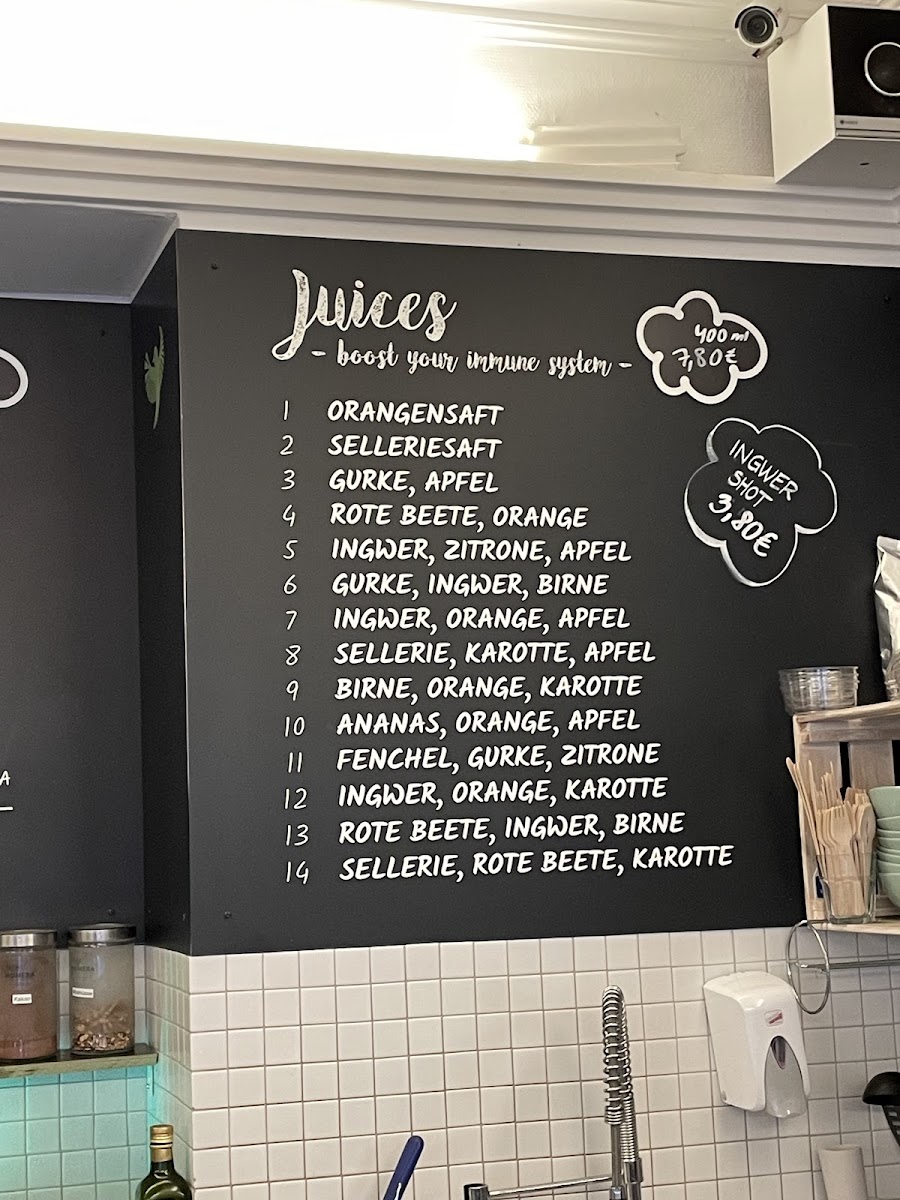 Juices
- boost your immune system -
400 ml
7,80€
INGWER
SHOT
3,80€
1 ORANGENSAFT
2 SELLERIESAFT
3 GURKE, APFEL
4 ROTE BEETE, ORANGE
5 INGWER, ZITRONE, APFEL
6 GURKE, INGWER, BIRNE
7 INGWER, ORANGE, APFEL
8 SELLERIE, KAROTTE, APFEL
9 BIRNE, ORANGE, KAROTTE
10 ANANAS, ORANGE, APFEL
11 FENCHEL, GURKE, ZITRONE
12 INGWER, ORANGE, KAROTTE
13 ROTE BEETE, INGWER, BIRNE
14 SELLERIE, ROTE BEETE, KAROTTE
A
Kakao